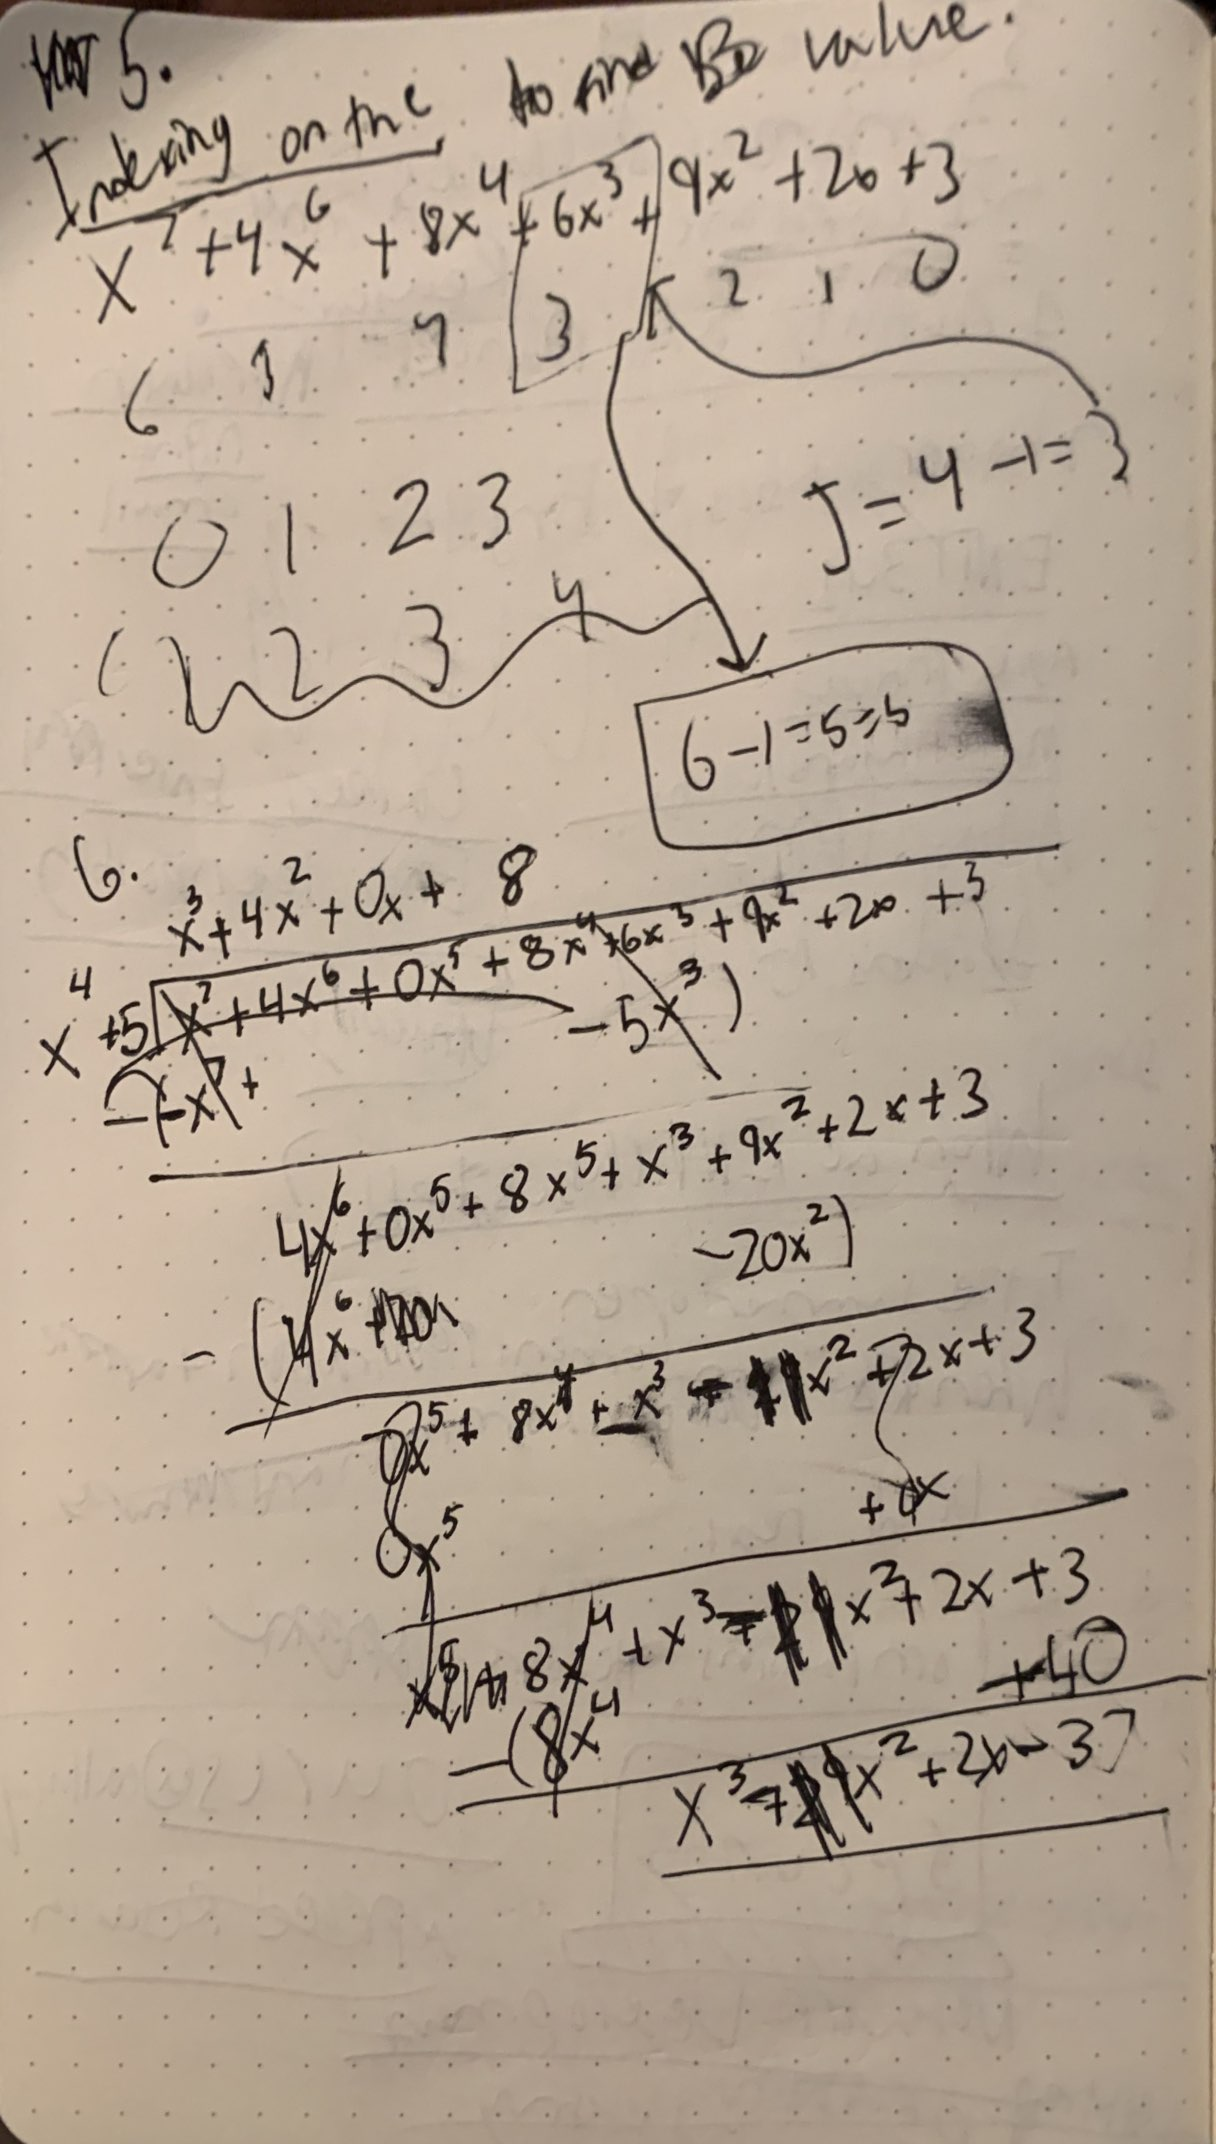 5.
Indexing on the to find B value.
x^7 + 4x^6 + 8x^4 + 6x^3 + 9x^2 + 2x + 3
6 3 4 3 2 1 0
J = 4 - 1 = 3
0 1 2 3
( 1 2 3 4
6 - 1 = 5 = 5
6.
x^3 + 4x^2 + 0x + 8
x^4 + 5 x^7 + 4x^6 + 0x^5 + 8x^4 + 6x^3 + 9x^2 + 2x + 3
-(-x^7 + - 5x^3)
4x^6 + 0x^5 + 8x^5 + x^3 + 9x^2 + 2x + 3
- (4x^6 - 20x^2)
0x^5 + 8x^4 + x^3 - 11x^2 + 2x + 3
0x^5 + 0x
8x^4 + x^3 - 11x^2 + 2x + 3
- (8x^4 + 40
x^3 - 11x^2 + 2x - 37